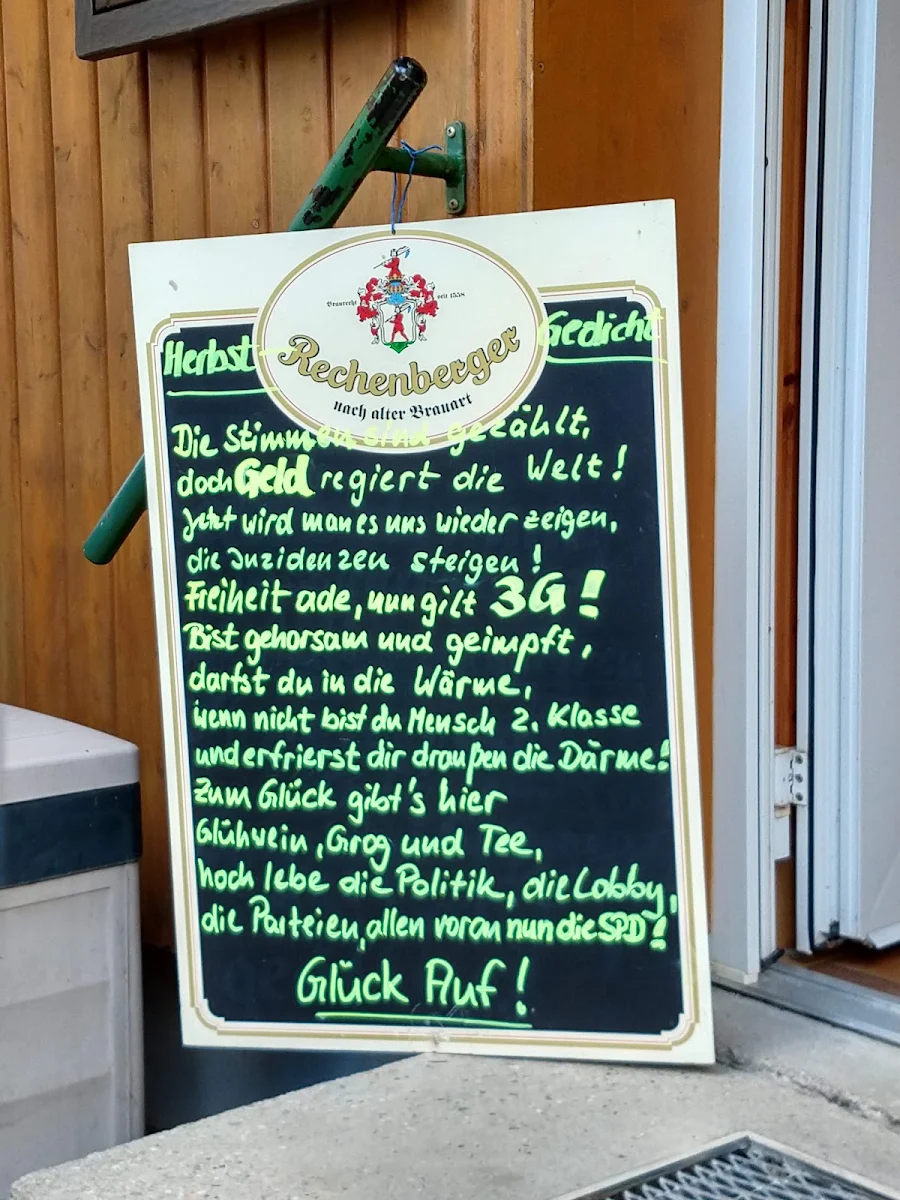 Braurecht seit 1558
Rechenberger
nach alter Brauart
Herbst- Gedicht
Die Stimmen sind gezählt,
doch Geld regiert die Welt!
Jetzt wird man es uns wieder zeigen,
die Inzidenzen steigen!
Freiheit ade, nun gilt 3G!
Bist gehorsam und geimpft,
darfst du in die Wärme,
wenn nicht bist du Mensch 2. Klasse
und erfrierst dir draußen die Därme!
Zum Glück gibt's hier
Glühwein, Grog und Tee,
hoch lebe die Politik, die Lobby,
die Parteien, allen voran nun die SPD!
Glück Auf!